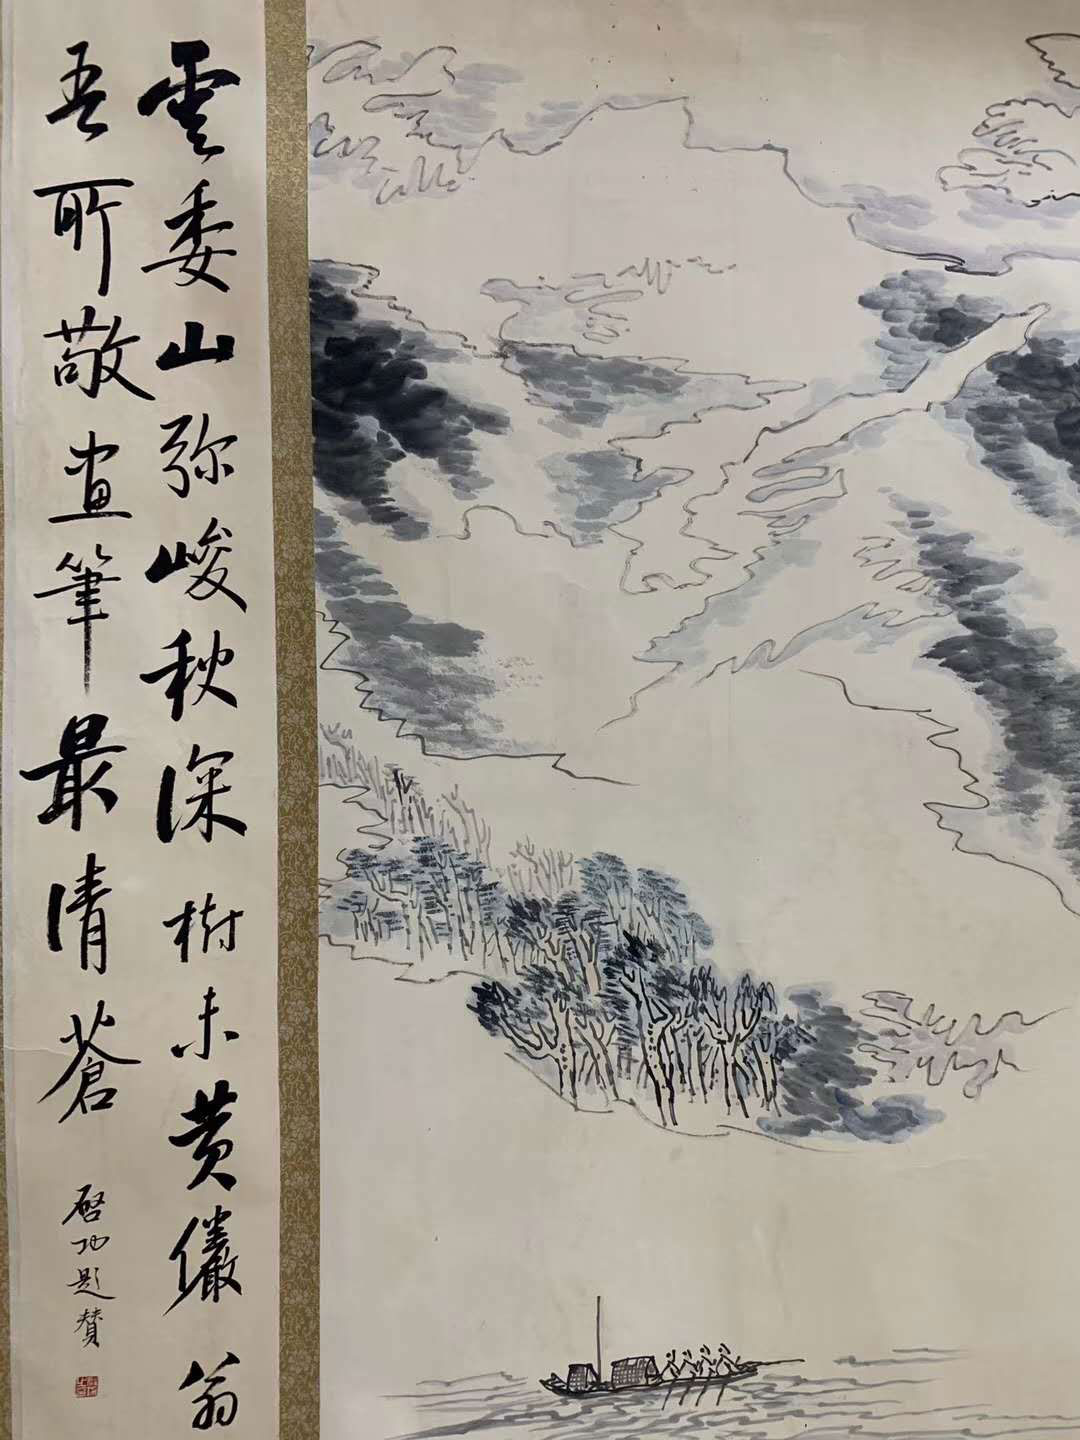 雲委山弥峻秋深樹未黄儼翁
吾所敬畫筆最清蒼
啓功題賛